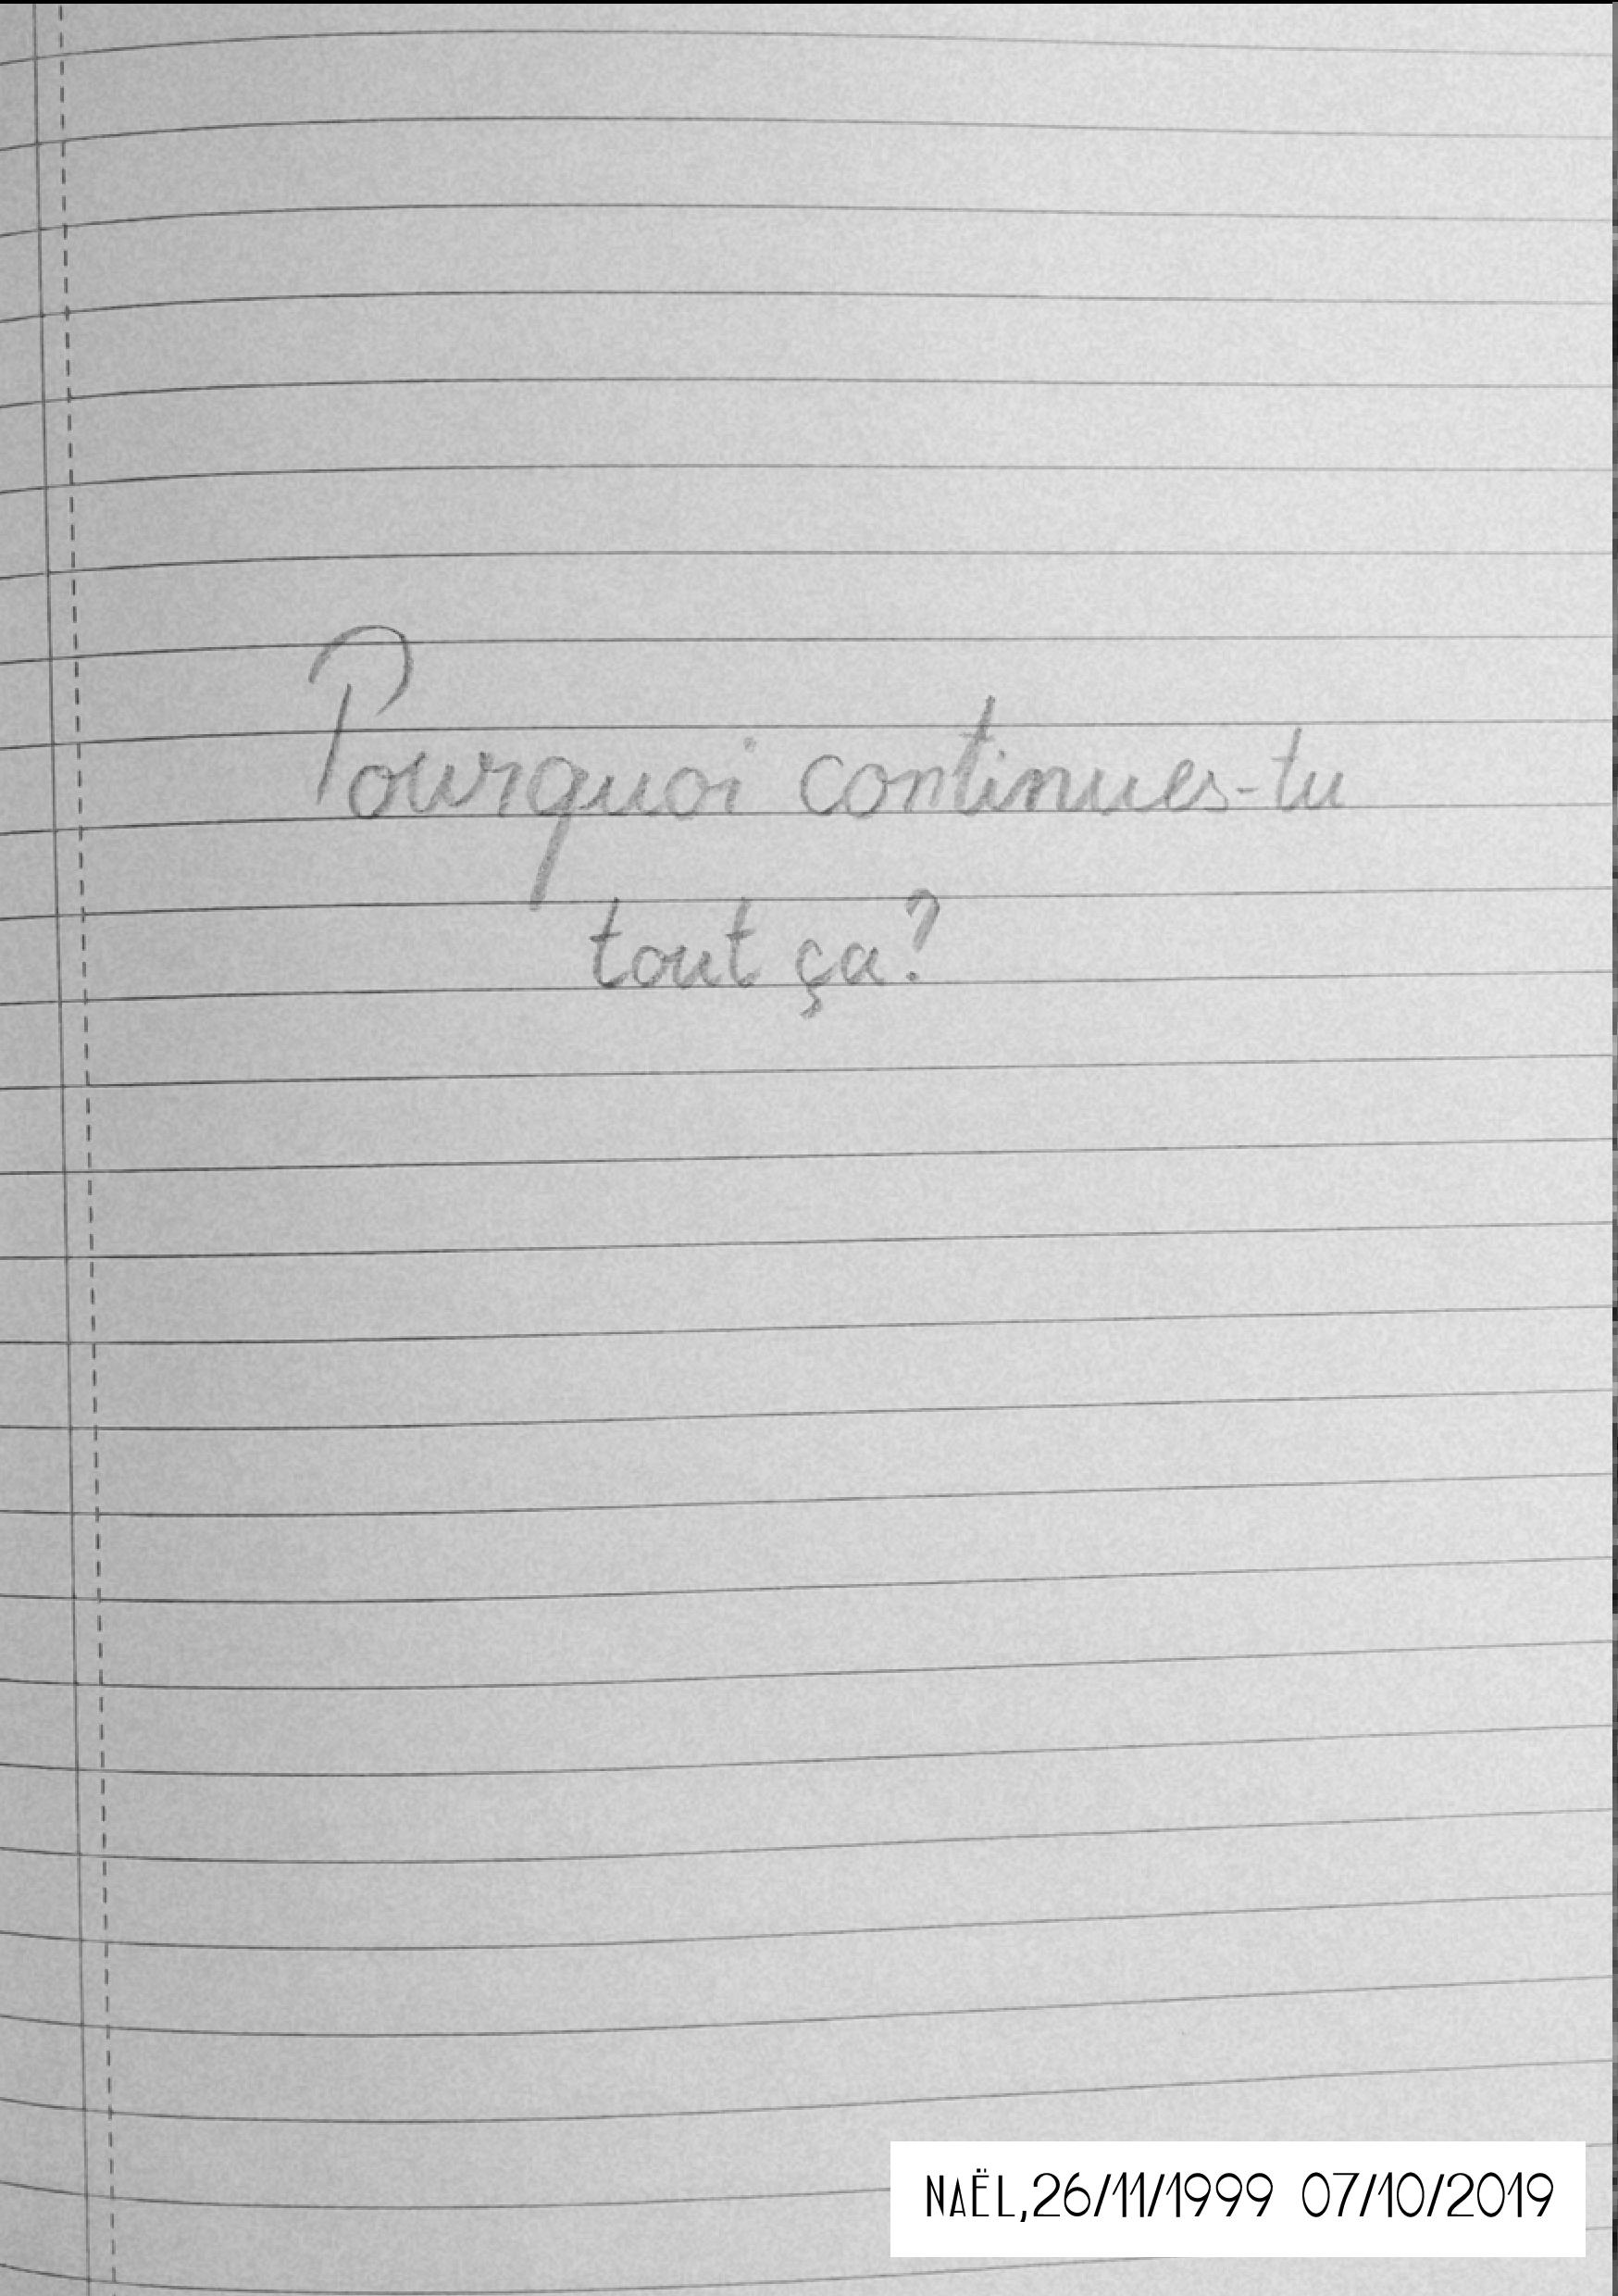 Pourquoi continues-tu
tout ça?
NAËL,26/11/1999 07/10/2019